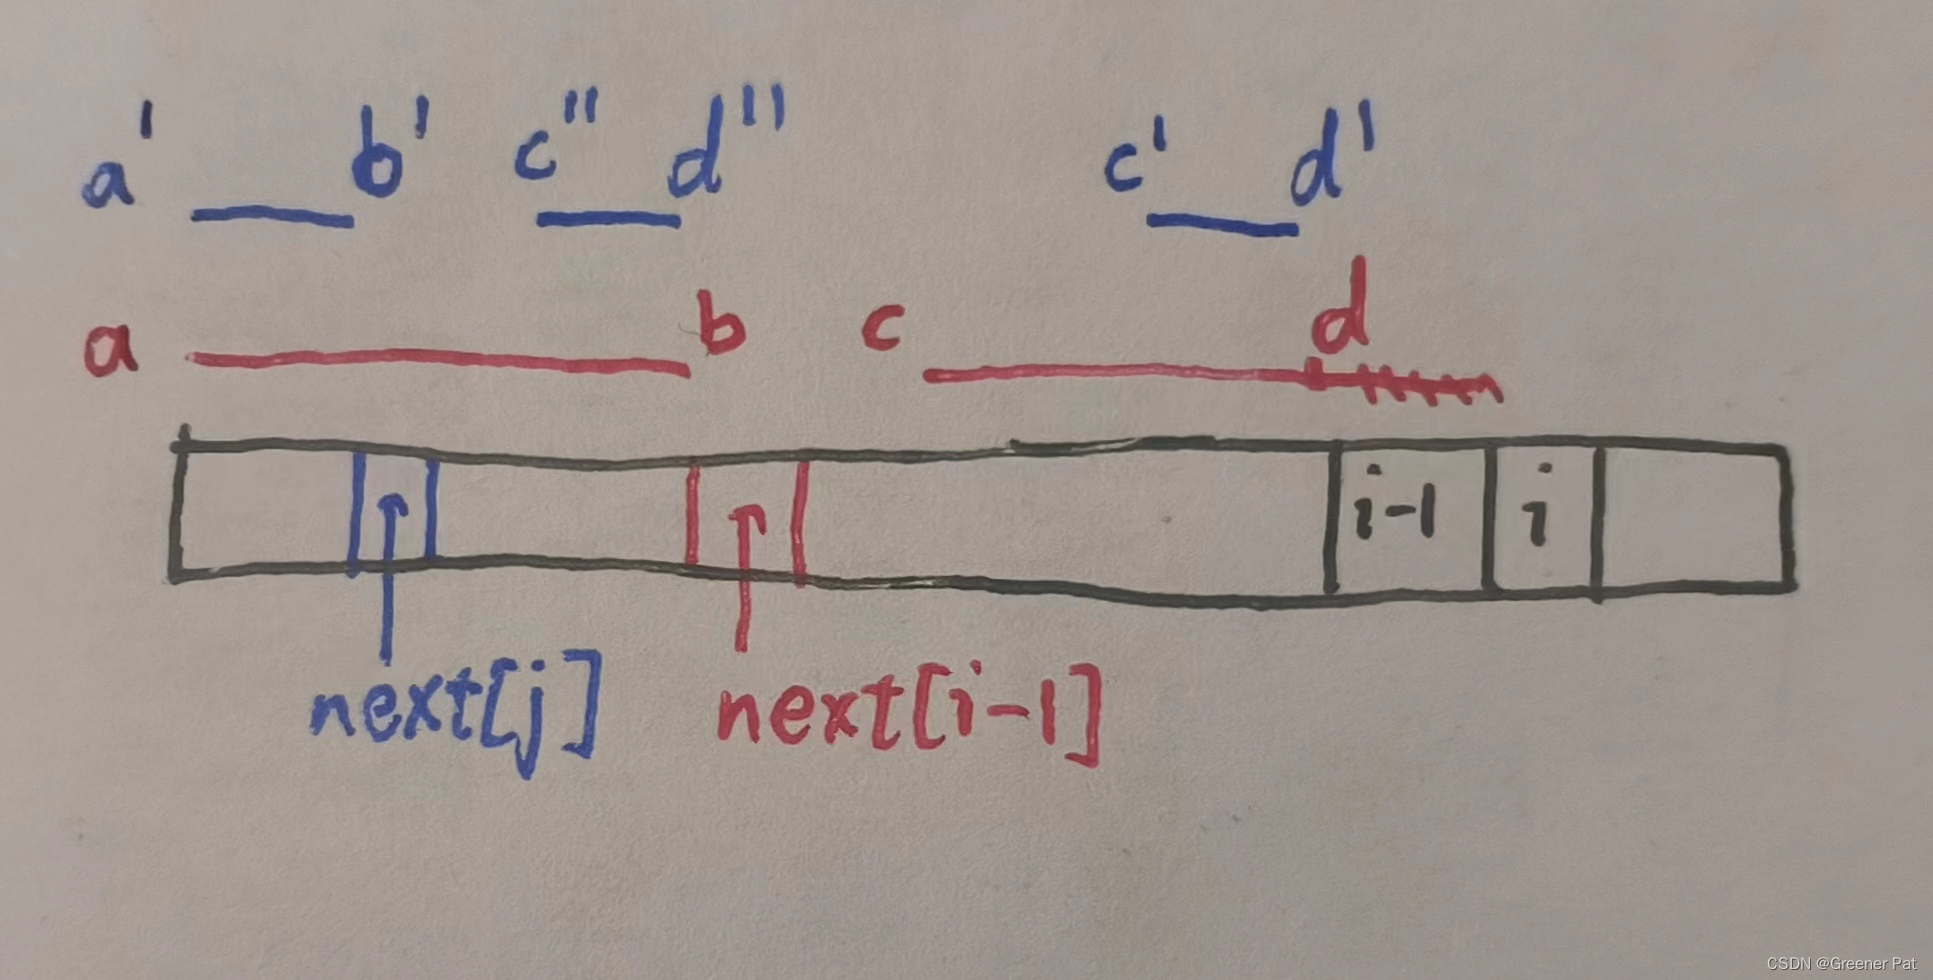 a' b' c'' d'' c' d'
a b c d
i-1 i
next[j] next[i-1]
CSDN @Greener Pat